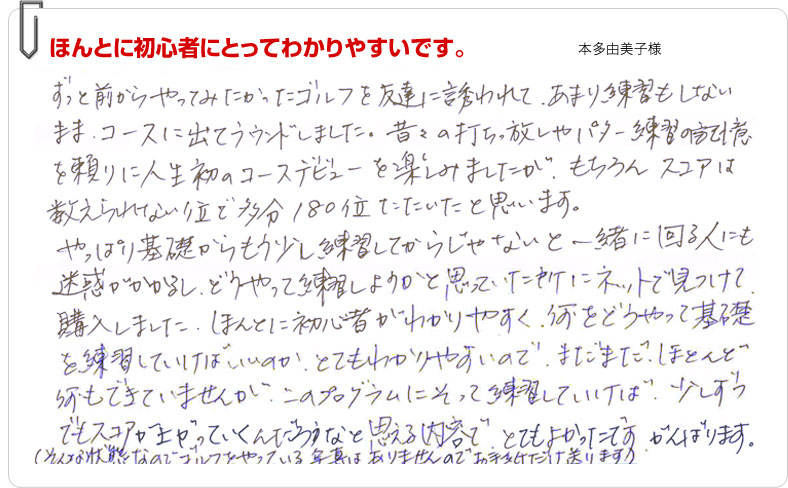 ほんとに初心者にとってわかりやすいです。
本多由美子様
ずっと前からやってみたかったゴルフを友達に誘われて、あまり練習もしない
まま、コースに出てラウンドしました。昔々の打ちっ放しやパター練習の記憶
を頼りに人生初のコースデビューを楽しみましたが、もちろん スコアは
数えられない位で多分180位たたいたと思います。
やっぱり基礎からもう少し練習してからじゃないと一緒に回る人にも
迷惑がかかるし、どうやって練習しようかと思っていた所にネットで見つけて
購入しました。ほんとに初心者がわかりやすく、何をどうやって基礎
を練習していけばいいのか、とてもわかりやすいので、まだまだ、ほとんど
何もできていませんが、このプログラムにそって練習していけば、少しずつ
でもスコアが上がっていくんだろうなと思える内容で とてもよかったです がんばります。
(そんな状態なのでゴルフをやっている写真はありませんのでお手紙だけ送ります)